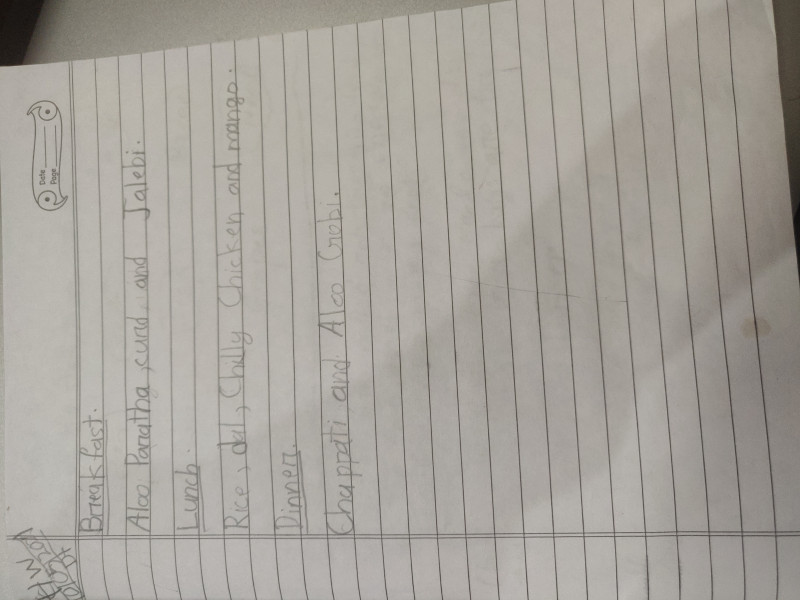 Date
Page
Breakfast.
Aloo Paratha, curd, and Jalebi.
Lunch.
Rice, dal, Chilly Chicken and mango.
Dinner.
Chappati and Aloo Gobi.